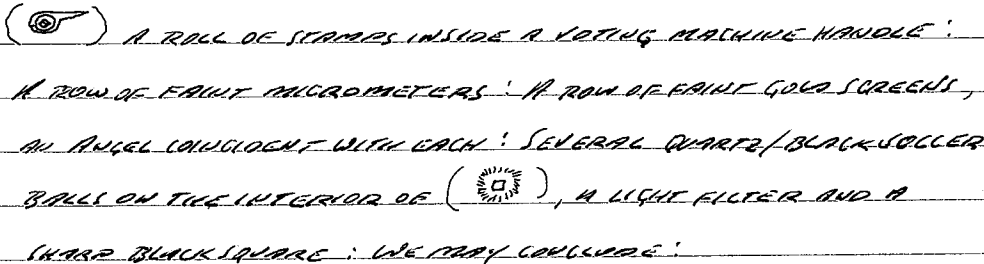 ( ) A ROLL OF STAMPS INSIDE A VOTING MACHINE HANDLE :
A ROW OF FAINT MICROMETERS : A ROW OF FAINT GOLD SCREENS,
AN ANGEL COINCIDENT WITH EACH : SEVERAL QUARTZ/BLACK SOCCER
BALLS ON THE INTERIOR OF ( ), A LIGHT FILTER AND A
SHARP BLACK SQUARE : WE MAY CONCLUDE :